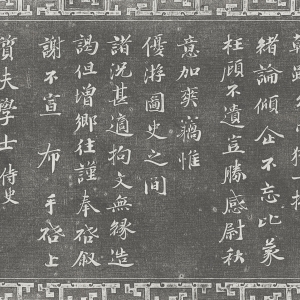 緒論傾企不忘比蒙
枉顧不遺豈勝感尉秋
意加爽竊惟
優游圖史之間
諸況甚適拘文無緣造
謁但增鄉往謹奉啓敘
謝不宣 布 手啓上
質夫學士 侍史